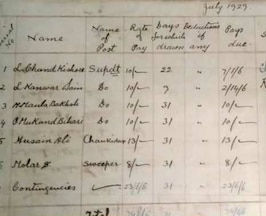 July 1929
Name Name of Post Rate of Pay Days for which drawn Deductions if any Pays due
1 L. Chand Kishore Supdt 10/- 22 " 7/1/6
2 L. Kanwar Sain Do 10/- 9 " 2/14/6
3 Do 10/- 31 " 10/-
4 Do 10/- 31 " 10/-
5 Husam Ali Chaukidar 13/- 31 " 13/-
6 Molar Sweeper 8/- 31 " 8/-
Contingencies 23/6/6 31 " 23/6/6
Total